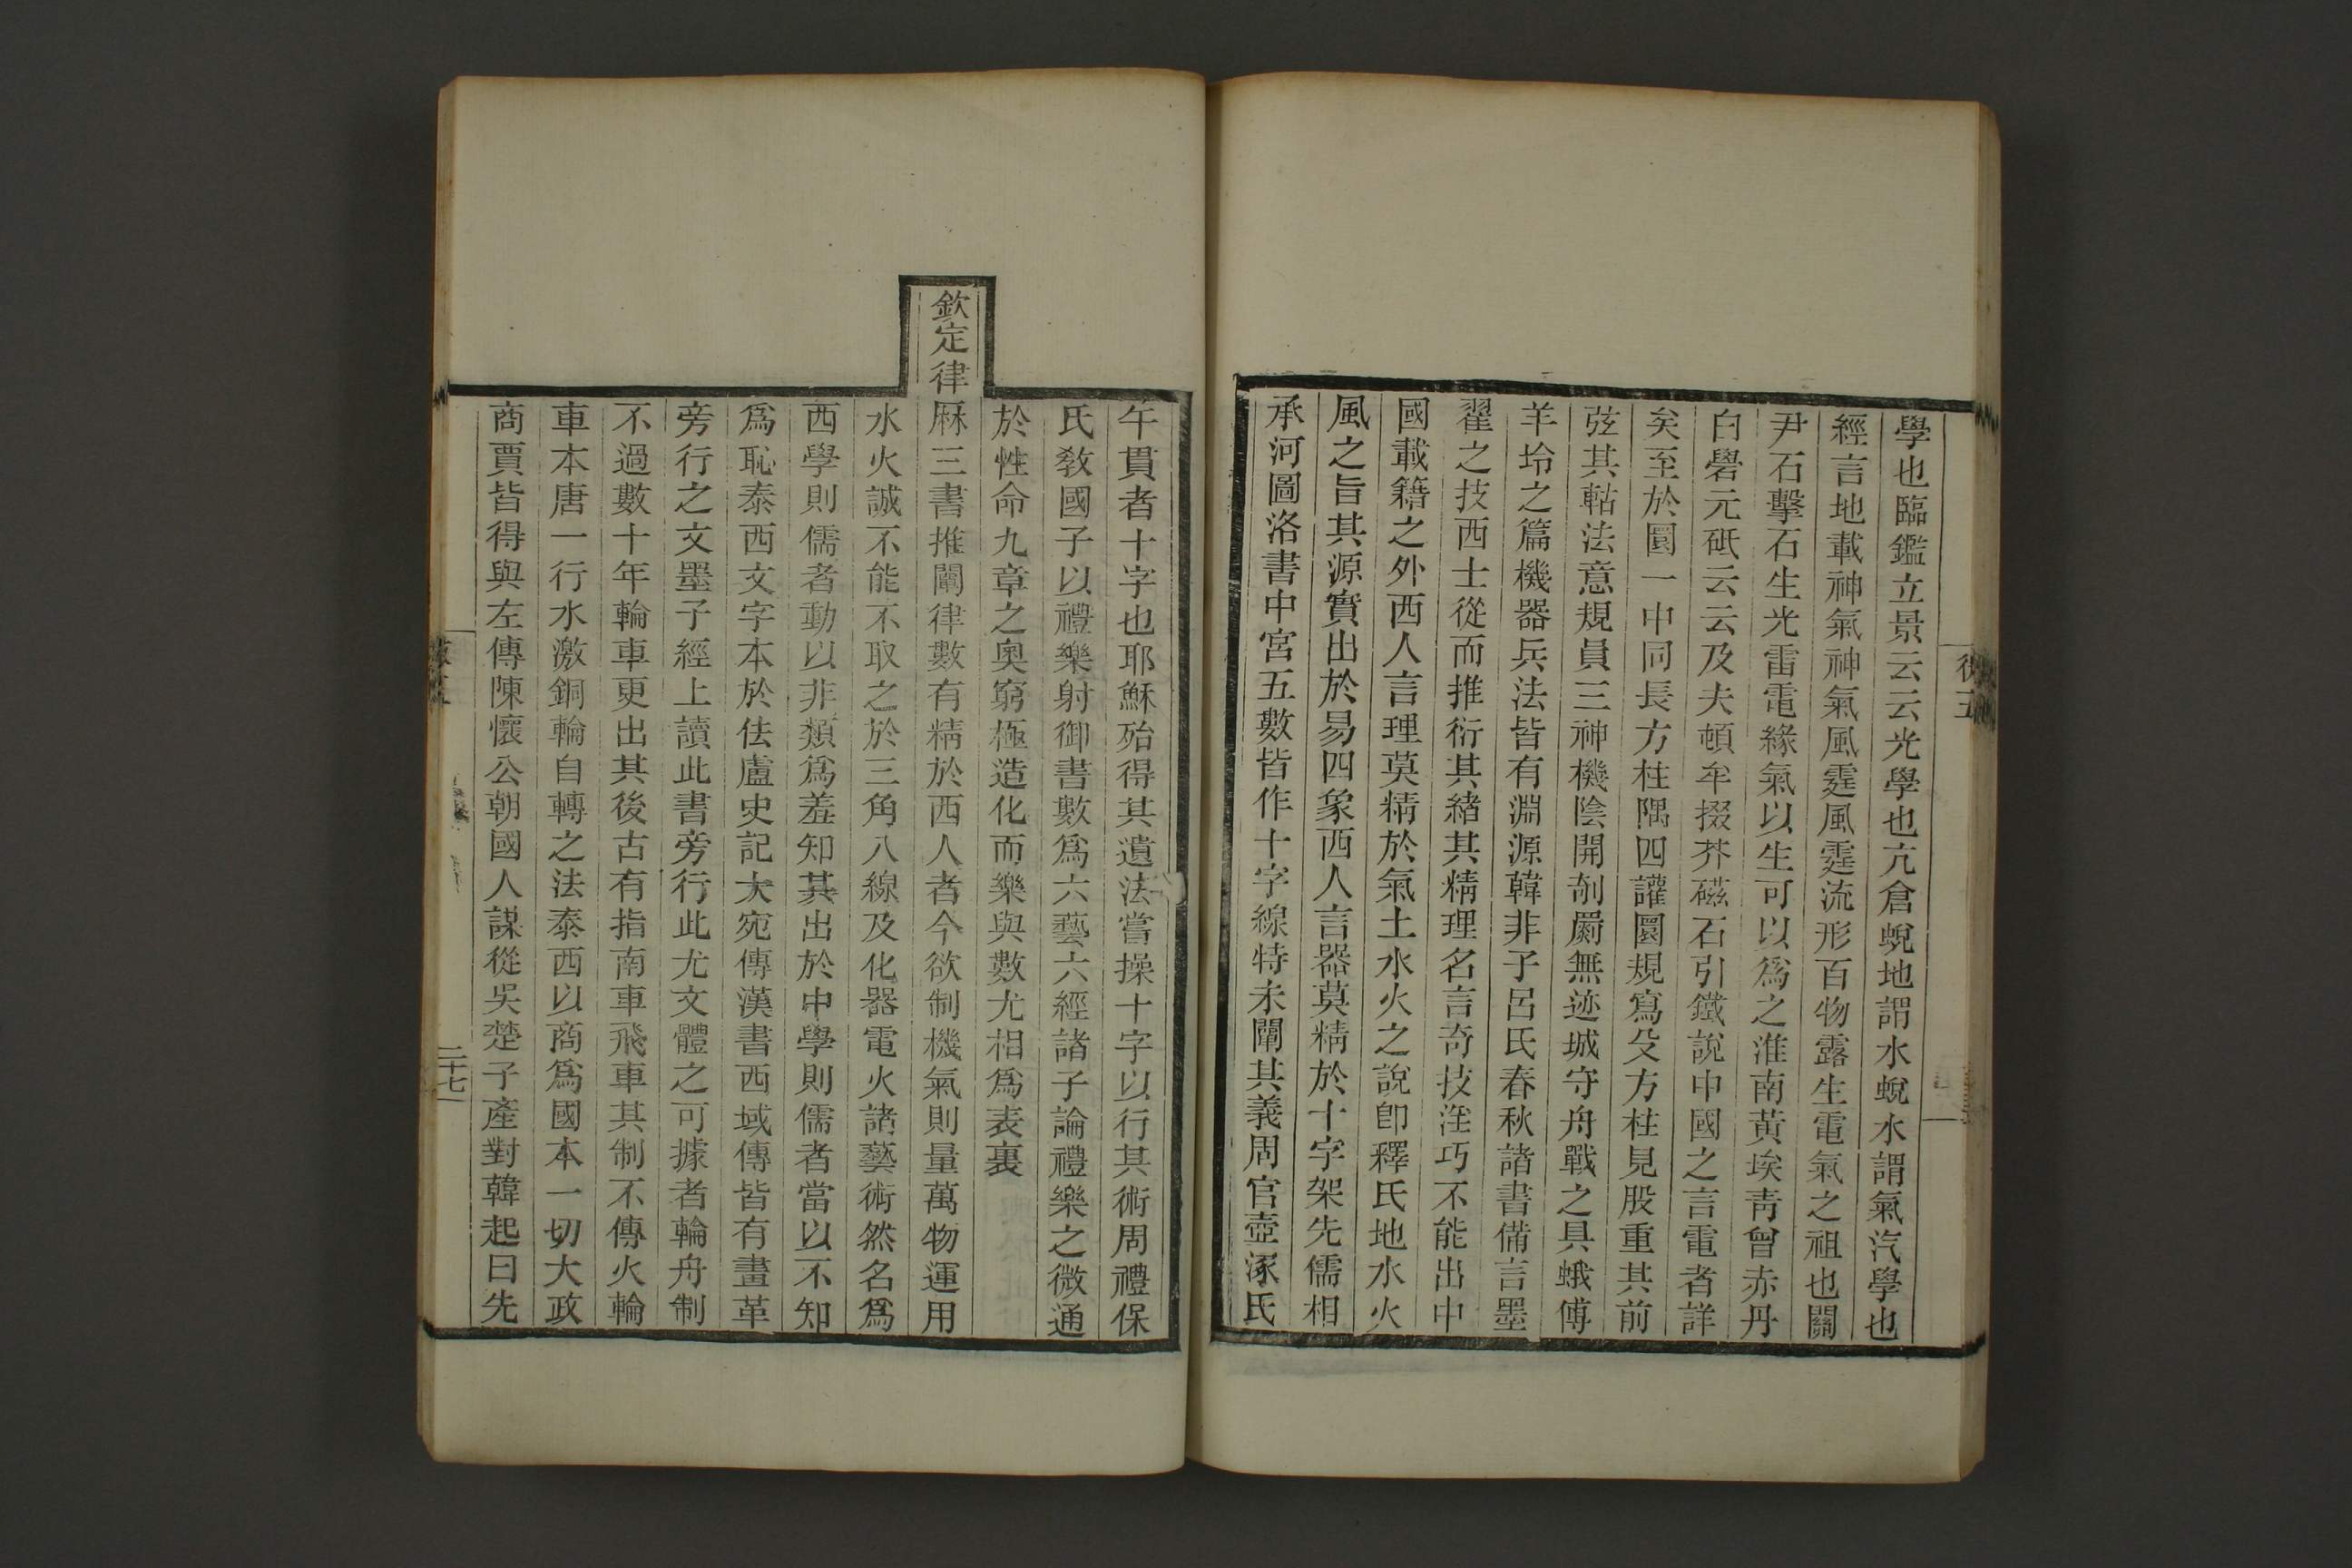 學也臨鑑立景云云光學也亢倉蛻地謂水蛻水謂氣汽學也
經言地載神氣神氣風霆風霆流形百物露生電氣之祖也關
尹石擊石生光雷電緣氣以生可以爲之淮南黃埃靑曾赤丹
白礜元砥云云及夫頓牟掇芥磁石引鐵說中國之言電者詳
矣至於圜一中同長方柱隅四讙圜規寫殳方柱見股重其前
弦其軲法意規員三神機陰開剞劂無迹城守舟戰之具蛾傅
羊坽之篇機器兵法皆有淵源韓非子呂氏春秋諸書備言墨
翟之技西士從而推衍其緒其精理名言奇技淫巧不能出中
國載籍之外西人言理莫精於氣土水火之說卽釋氏地水火
風之旨其源實出於易四象西人言器莫精於十字架先儒相
承河圖洛書中宮五數皆作十字線特未闡其義周官壺涿氏
午貫者十字也耶穌殆得其遺法嘗操十字以行其術周禮保
氏敎國子以禮樂射御書數爲六藝六經諸子論禮樂之微通
於性命九章之奧窮極造化而樂與數尤相爲表裏
欽定律厤三書推闡律數有精於西人者今欲制機氣則量萬物運用
水火誠不能不取之於三角八線及化器電火諸藝術然名爲
西學則儒者動以非類爲羞知其出於中學則儒者當以不知
爲恥泰西文字本於佉盧史記大宛傳漢書西域傳皆有畫革
旁行之文墨子經上讀此書旁行此尤文體之可據者輪舟制
不過數十年輪車更出其後古有指南車飛車其制不傳火輪
車本唐一行水激銅輪自轉之法泰西以商爲國本一切大政
商賈皆得與左傳陳懷公朝國人謀從吳楚子產對韓起曰先
二十七